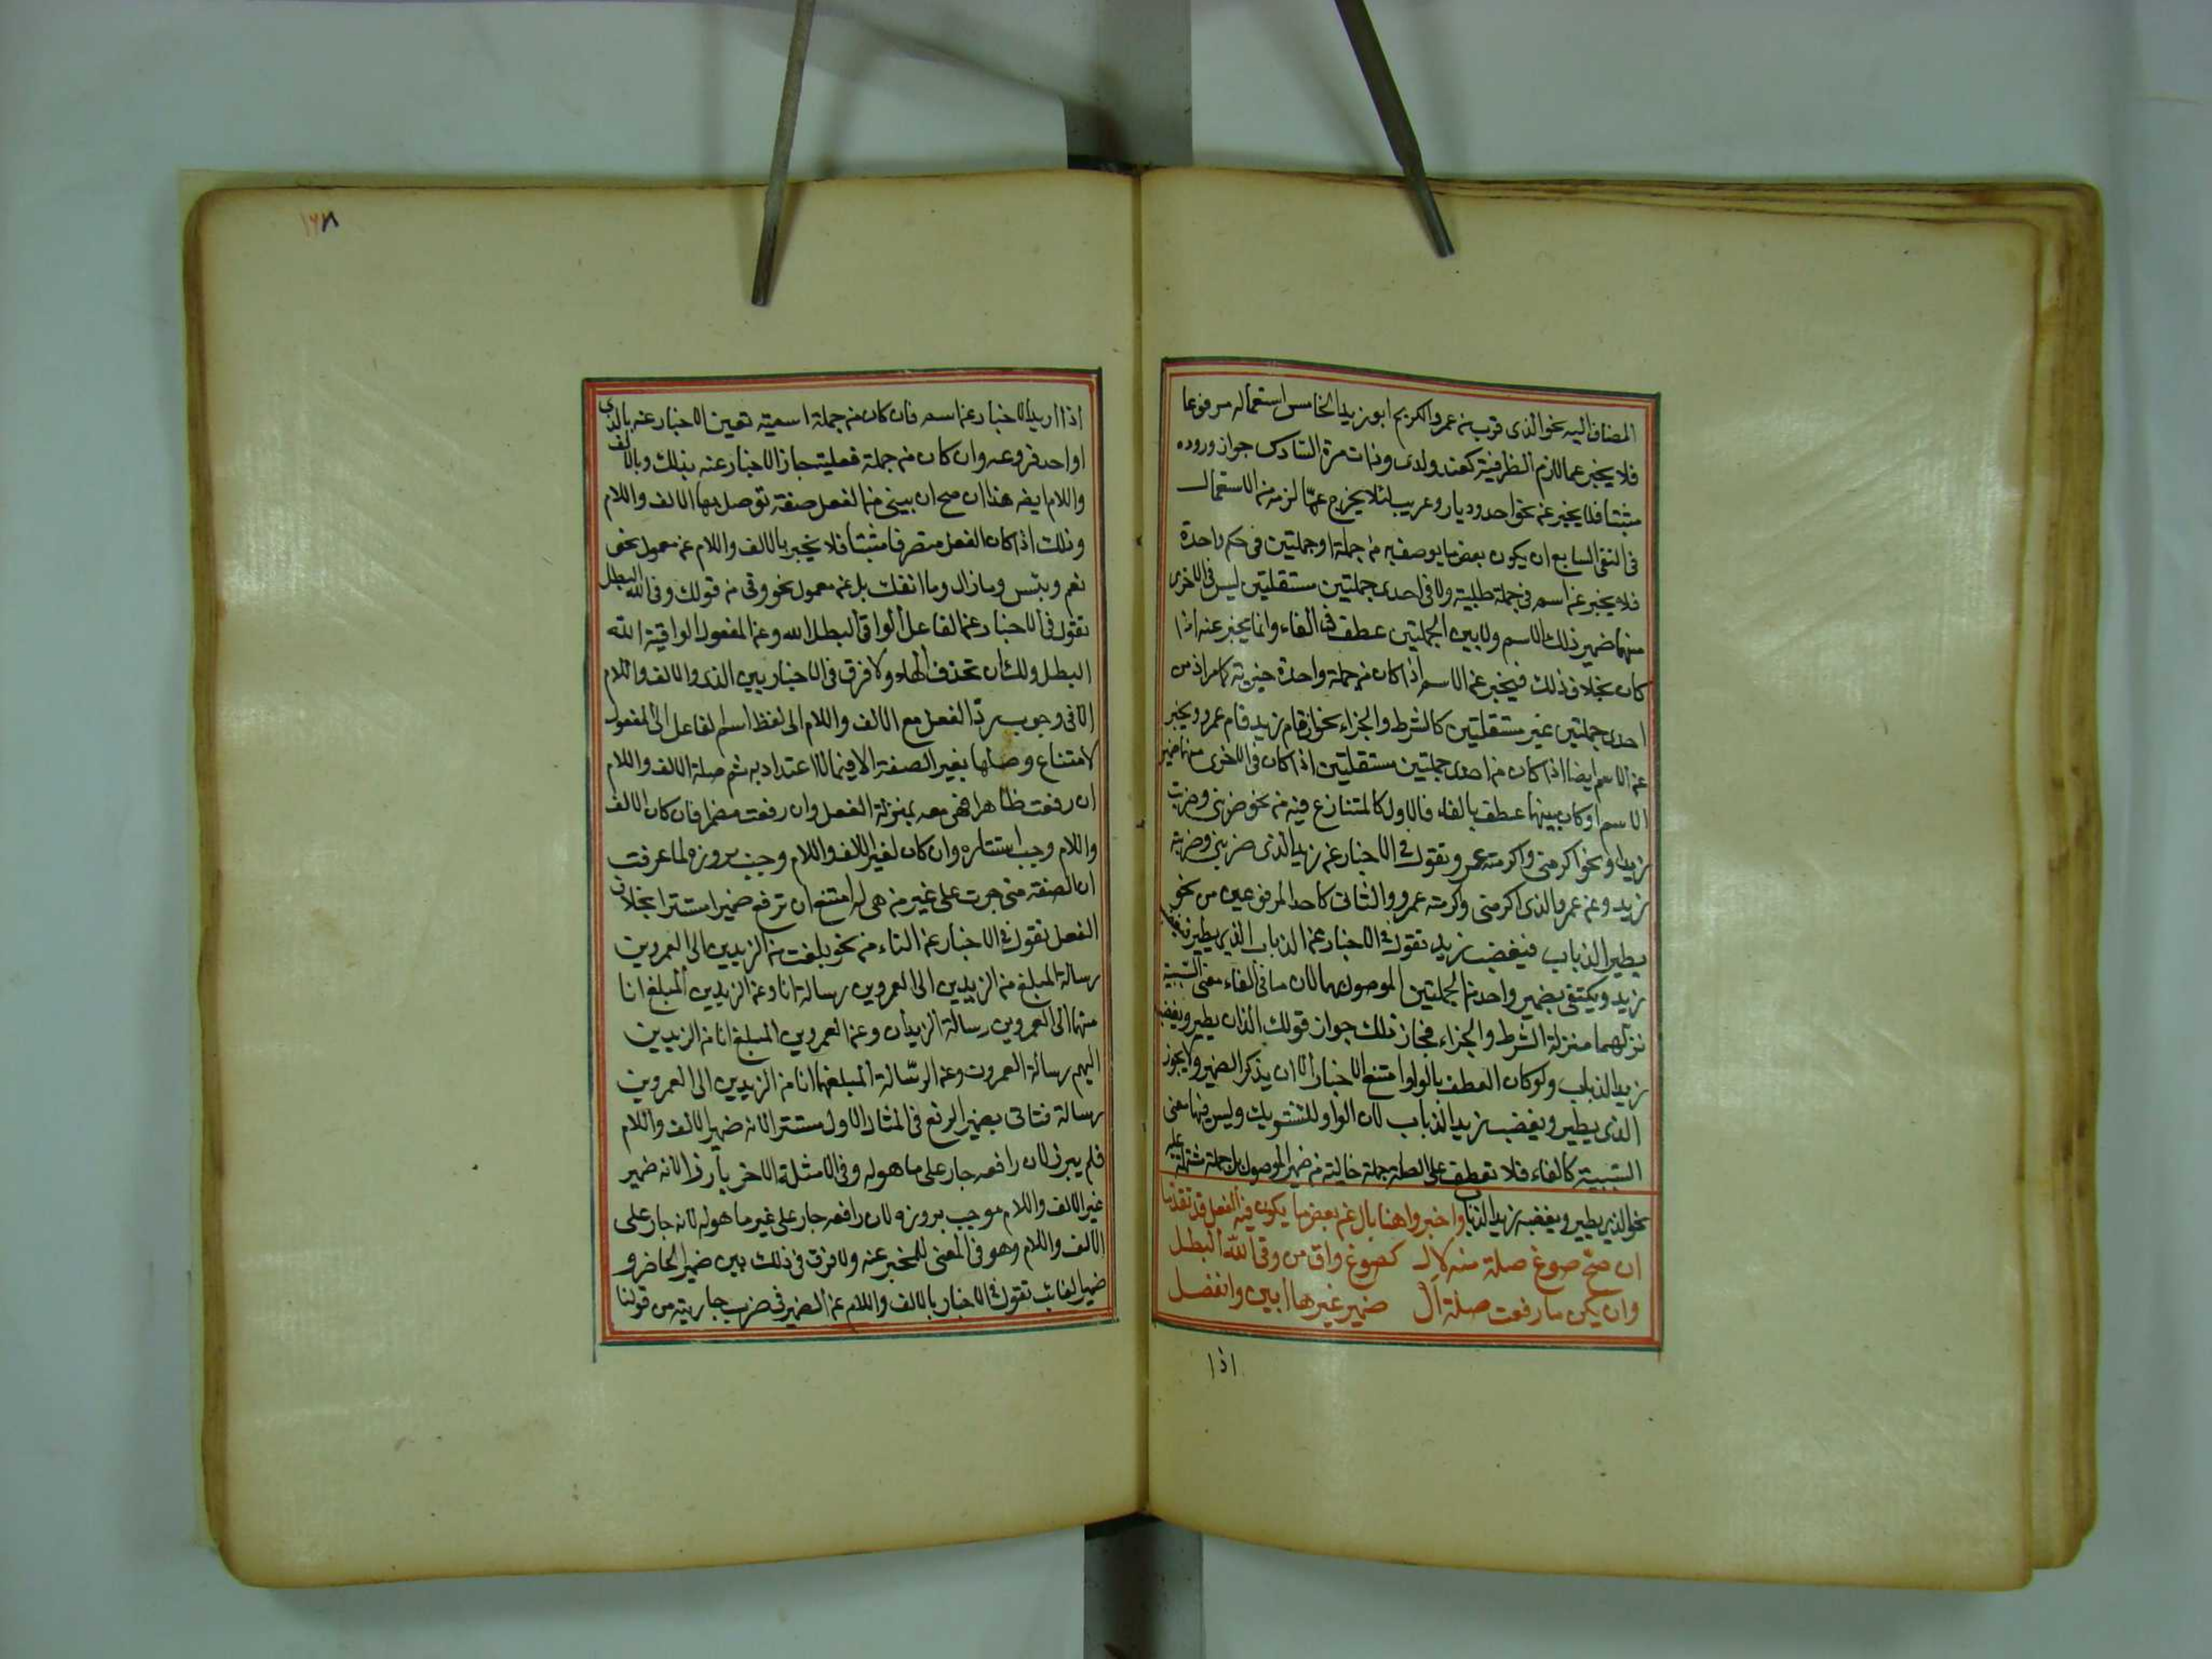 المضاف اليه نحو الذى قرب من عمرو الكريم ابو زيد الخامس استعماله مرفوعا
فلا يخبر عما لازم الظرفية كعند ولدى وذات مرة السادس جواز وروده
مثبتا فلا يخبر عن نحو احد وديار وعريب لئلا يخرج عما لزمه من الاستعمال
فى النفى السابع ان يكون بعض ما يوصف به من جملة او جملتين فى حكم واحدة
فلا يخبر عن اسم فى جملة طلبية ولا فى احدى جملتين مستقلتين ليس فى الاخرى
منهما ضمير ذلك الاسم ولا بين الجملتين عطف فى الفاء وانما يخبر عنه اذا
كان بخلاف ذلك فيخبر عن الاسم اذا كان من جملة واحدة خبرية كما مر اذ من
احدى جملتين غير مستقلتين كالشرط والجزاء نحو ان قام زيد قام عمرو ويخبر
عن الاسم ايضا اذا كان من احدى جملتين مستقلتين اذا كان فى الاخرى منهما ضمير
الاسم او كان بينهما عطف بالفاء فالاول كالمتنازع فيه من نحو ضربنى وضربت
زيدا ونحو اكرمنى واكرمته عمرو وتقول فى الاخبار عن زيد الذى ضربنى وضربته
زيد وعن عمرو الذى اكرمنى واكرمته عمرو والثانى كاحد المرفوعين من نحو
يطير الذباب فيغضب زيد تقول فى الاخبار عن الذباب الذى يطير فيغضب
زيد ويكتفى بضمير واحد من الجملتين الموصول بهما لان ما فى الفاء معنى السببية
نزلهما منزلة الشرط والجزاء فجاز ذلك جواز قولك الذى ان يطير ويغضب
زيد الذباب ولو كان العطف بالواو امتنع الاخبار الا ان يذكر الضمير ولا يجوز
الذى يطير ويغضب زيد الذباب لان الواو للتشريك وليس فيها معنى
السببية كالفاء فلا تعطف على الصلة جملة خالية من ضمير الموصول بل جملة مشتملة عليه
نحو الذى يطير ويغضبه زيد الذباب واخبروا هنا بال عن بعض ما يكون فيه الفعل قد تقدما
ان صح صوغ صلة منه لال كصوغ واق من وقى الله البطل
وان يكن ما رفعت صلة ال ضمير غيرها ابين وانفصل
اذا
١٦٨
اذا اريد الاخبار عن اسم فان كان من جملة اسمية تعين الاخبار عنه بالذى
او احد فروعه وان كان من جملة فعلية جاز الاخبار عنه بذلك وبالالف
واللام ايضا هذا ان صح ان يبنى من الفعل صفة توصل بها الالف واللام
وذلك اذا كان الفعل متصرفا مثبتا فلا يخبر بالالف واللام عن معمول نحو
نعم وبئس وما زال وما انفك بل عن معمول نحو وقى من قولك وقى الله البطل
تقول فى الاخبار عن الفاعل الواقى البطل الله وعن المفعول الواقيه الله
البطل ولك ان تحذف الهاء ولا فرق فى الاخبار بين الذى والالف واللام
الا فى وجوب رد الفعل مع الالف واللام الى لفظ اسم الفاعل او المفعول
لامتناع وصلها بغير الصفة الا فيما لا اعتداد به ثم صلة الالف واللام
ان رفعت ظاهرا فهى معه بمنزلة الفعل وان رفعت مضمرا فان كان الالف
واللام وجب استتاره وان كان لغير الالف واللام وجب بروزه لما عرفت
ان الصفة متى جرت على غير من هى له امتنع ان ترفع ضميرا مستترا بخلاف
الفعل تقول فى الاخبار عن التاء من نحو بلغت من الزيدين الى العمرين
رسالة المبلغ من الزيدين الى العمرين رسالة انا وعن الزيدين المبلغ انا
منهما الى العمرين رسالة الزيدان وعن العمرين المبلغ انا من الزيدين
اليهم رسالة العمرون وعن الرسالة المبلغها انا من الزيدين الى العمرين
رسالة فتاتى بضمير الرفع فى المثال الاول مستترا لانه ضمير الالف واللام
فلم يبرز لان رافعه جار على ما هو له وفى الامثلة الاخر بارزا لانه ضمير
غير الالف واللام موجب بروزه لان رافعه جار على غير ما هو له لانه جار على
الالف واللام وهو فى المعنى للمخبر عنه ولا فرق فى ذلك بين ضمير الحاضر و
ضمير الغائب تقول فى الاخبار بالالف واللام عن الضمير فى ضرب جاريته من قولنا